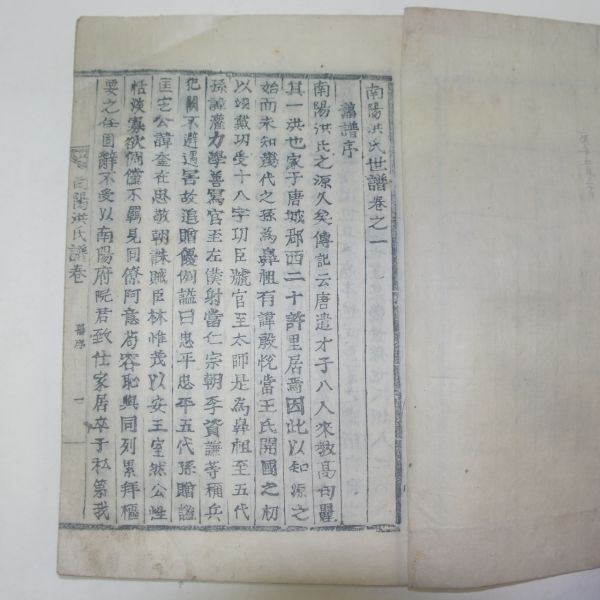 南陽洪氏世譜卷之一
舊譜序
南陽洪氏之源久矣傳記云唐遣才子八人來教高句麗
其一洪也家于唐城郡西二十許里居焉因此以知源之
始而未知幾代之孫為鼻祖有諱殷悅當王氏開國之初
以翊戴功受十八字功臣號官至太師是為鼻祖至五代
孫諱灌力學善寫官至左僕射當仁宗朝李資謙等稱兵
犯闕不避遇害故追贈優例謚曰忠平忠平五代孫贈謚
匡定公諱奎在忠敬朝誅賊臣林惟茂以安王室然公性
恬淡寡欲倜儻不羈見同僚阿意苟容恥與同列累拜樞
要之任固辭不受以南陽府院君致仕家居卒于私第我
南陽洪氏譜卷 舊序 一